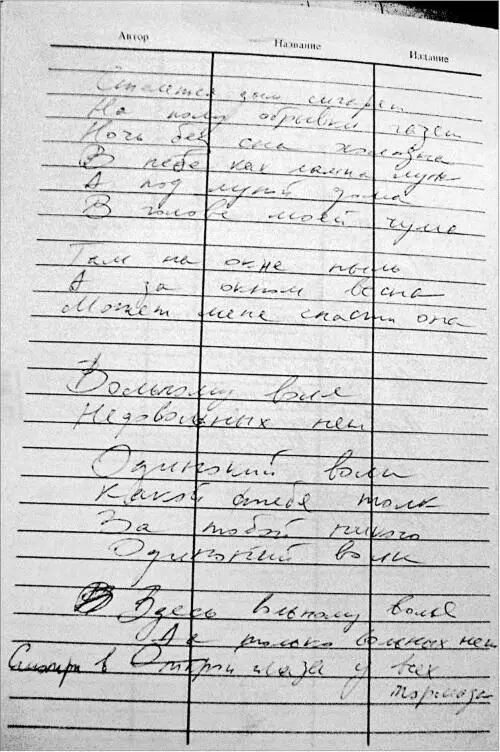 Автор Название Издание
Стелется дым сигарет
На полу обрывки газет
Ночь без сна холодна
В небе как лампа луна
А под луной дома
В голове моей чума
Там на окне пыль
А за окном весна
Может мене спасти она
Вольному воля
Недовольных нет
Одинокий волк
Какой с тебя толк
За тобой никого
Одинокий волк
Здесь вольному воля
Да только вольных нет
Смотри в Открой глаза у всех
тормоза